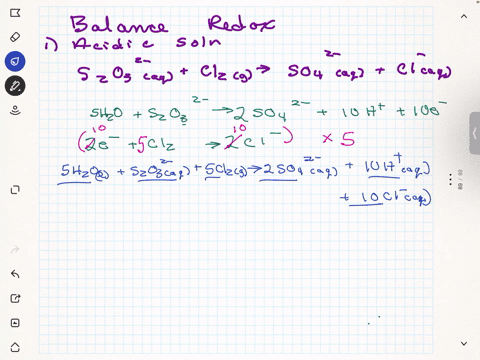 Balance Redox
1) Acidic Soln
S₂O₃²⁻(aq) + Cl₂(g) → SO₄²⁻(aq) + Cl⁻(aq)
5H₂O + S₂O₃²⁻ → 2SO₄²⁻ + 10H⁺ + 10e⁻
(2 10 e⁻ + 5Cl₂ → 2 10 Cl⁻) × 5
5H₂O(l) + S₂O₃²⁻(aq) + 5Cl₂(g) → 2SO₄²⁻(aq) + 10H⁺(aq)
+ 10Cl⁻(aq)